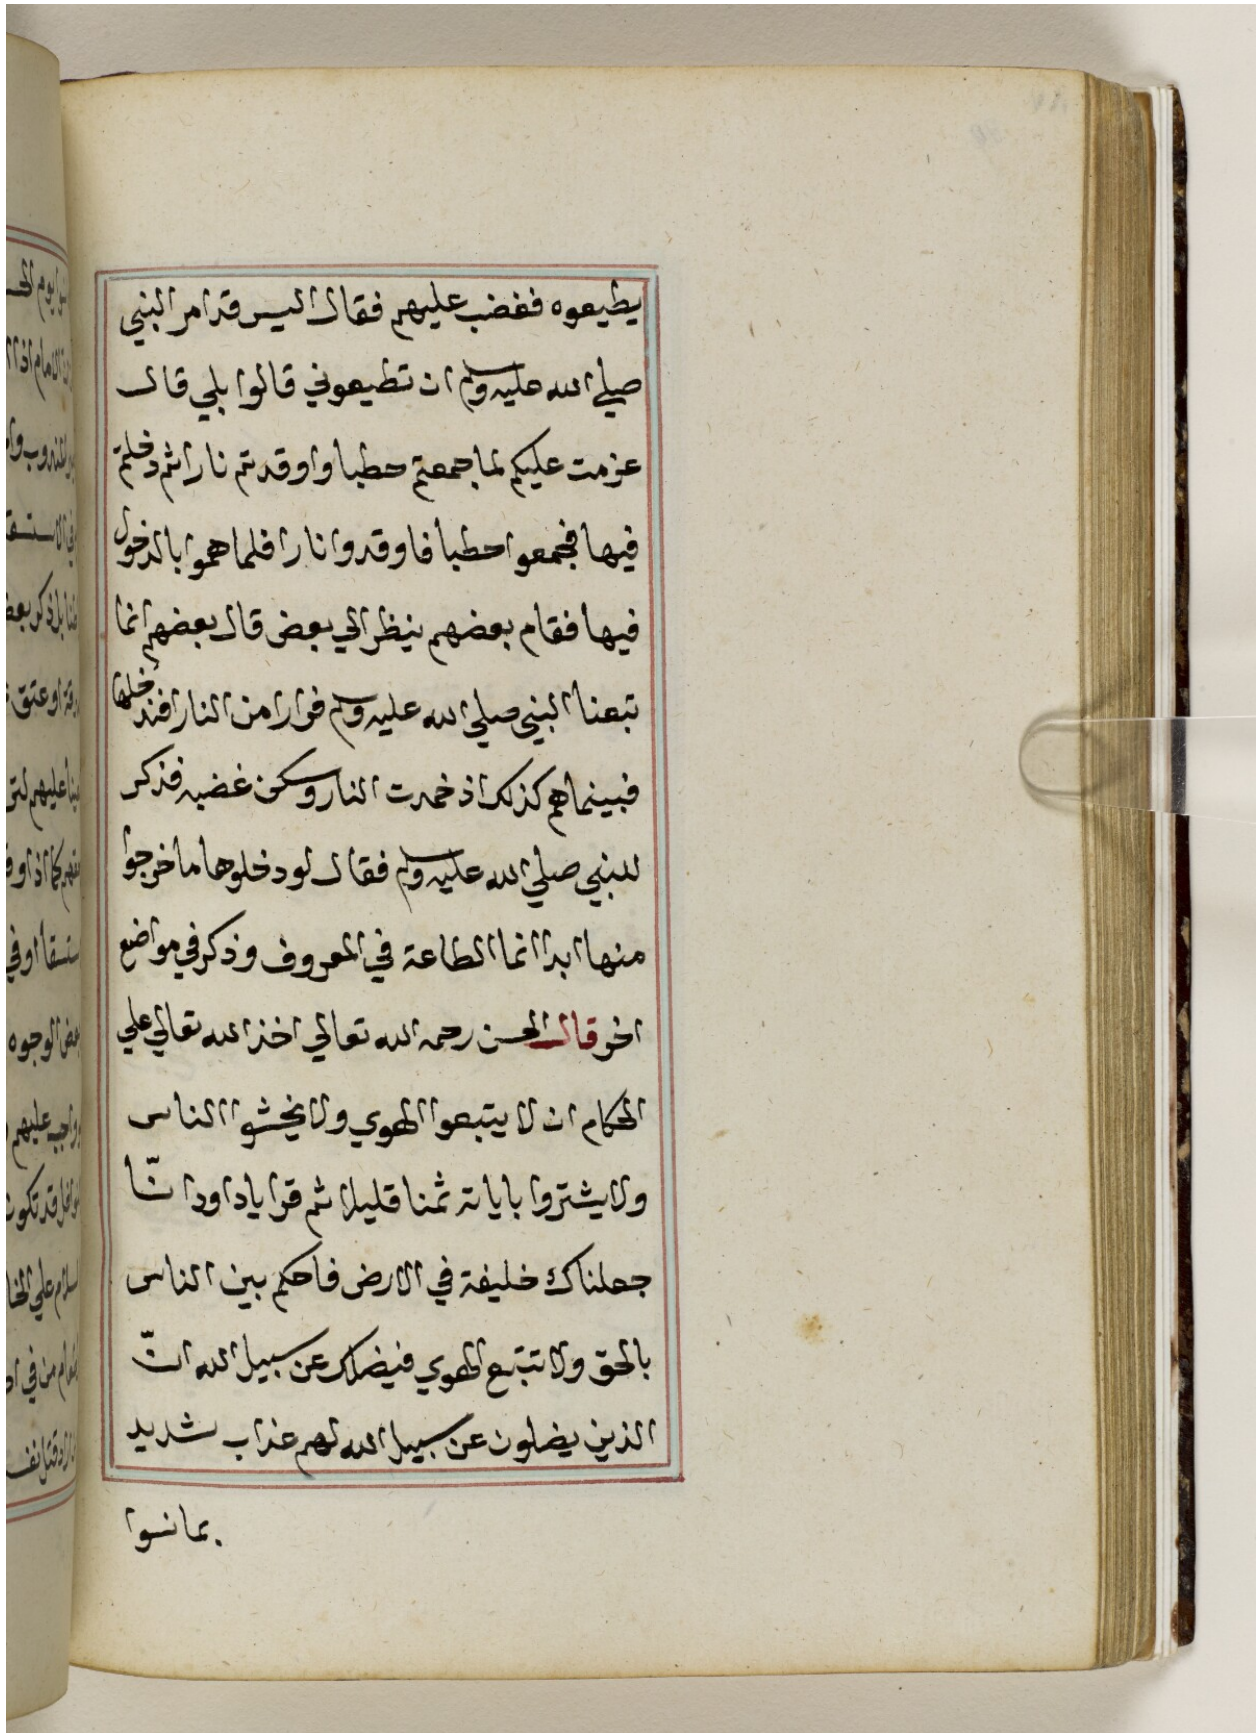 يطيعوه فغضب عليهم فقال اليس قد امر النبي
صلي الله عليه وسلم ان تطيعوني قالوا بلي قال
عزمت عليكم لما جمعتم حطبا واوقدتم نارا ثم دخلتم
فيها فجمعوا حطبا فاوقدوا نارا فلما هموا بالدخول
فيها فقام بعضهم ينظر الي بعض قال بعضهم انما
تبعنا النبي صلي الله عليه وسلم فرارا من النار افندخلها
فبينما هم كذلك اذ خمدت النار وسكن غضبه فذكر
للنبي صلي الله عليه وسلم فقال لو دخلوها ما خرجوا
منها ابدا انما الطاعة في المعروف وذكر في مواضع
اخر قال الحسن رحمه الله تعالي اخذ الله تعالي علي
الحكام ان لا يتبعوا الهوي ولا يخشوا الناس
ولا يشتروا باياته ثمنا قليلا ثم قرا ياداود انّا
جعلناك خليفة في الارض فاحكم بين الناس
بالحق ولا تتبع الهوي فيضلك عن سبيل الله انّ
الذين يضلون عن سبيل الله لهم عذاب شديد
بما نسوا